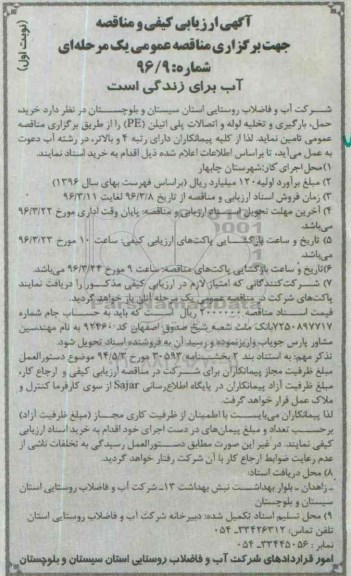 (نوبت اول)
آگهی ارزیابی کیفی و مناقصه
جهت برگزاری مناقصه عمومی یک مرحله‌ای
شماره: ۹۶/۹
آب برای زندگی است
شرکت آب و فاضلاب روستایی استان سیستان و بلوچستان در نظر دارد خرید،
حمل، بارگیری و تخلیه لوله و اتصالات پلی اتیلن (PE) را از طریق برگزاری مناقصه
عمومی تامین نماید. لذا از کلیه پیمانکاران دارای رتبه ۴ و بالاتر، در رشته آب دعوت
به عمل می‌آید، تا براساس اطلاعات اعلام شده ذیل اقدام به خرید اسناد نمایند.
۱) محل اجرای کار: شهرستان چابهار
۲) مبلغ برآورد اولیه ۱۲۰ میلیارد ریال (براساس فهرست بهای سال ۱۳۹۶)
۳) زمان فروش اسناد ارزیابی و مناقصه از تاریخ ۹۶/۳/۸ لغایت ۹۶/۳/۱۱
۴) آخرین مهلت تحویل اسناد ارزیابی و مناقصه: پایان وقت اداری مورخ ۹۶/۳/۲۲
می‌باشد.
۵) تاریخ و ساعت بازگشایی پاکت‌های ارزیابی کیفی: ساعت ۱۰ مورخ ۹۶/۳/۲۳
می‌باشد.
۶) تاریخ و ساعت بازگشایی پاکت‌های مناقصه: ساعت ۹ مورخ ۹۶/۳/۲۴ می‌باشد.
۷) شرکت‌کنندگانی که امتیاز لازم در ارزیابی کیفی مذکور را دریافت نمایند
پاکت‌های شرکت در مناقصه عمومی یک مرحله آنان باز خواهد گردید.
قیمت اسناد مناقصه ۲۰۰۰۰۰۰ ریال است که باید به حساب جام شماره
۷۲۵۰۸۹۷۷۱۷ بانک ملت شعبه شیخ صدوق اصفهان کد ۹۲۴۶۰ به نام مهندسین
مشاور پارس جویاب واریز نموده و رسید آن به فروشنده اسناد تحویل شود.
تذکر مهم: به استناد بند ۲ بخشنامه ۳۰۵۹۳ مورخ ۹۴/۵/۳ موضوع دستورالعمل
مبلغ ظرفیت مجاز پیمانکاران برای شرکت در مناقصه ارزیابی کیفی و ارجاع کار،
مبلغ ظرفیت آزاد پیمانکاران در پایگاه اطلاع‌رسانی Sajar از سوی کارفرما کنترل و
ملاک عمل قرار خواهد گرفت.
لذا پیمانکاران می‌بایست با اطمینان از ظرفیت کاری مجاز (مبلغ ظرفیت آزاد)
برحسب تعداد و مبلغ پیمان‌های در دست اجرای خود اقدام به خرید اسناد ارزیابی
کیفی نمایند. در غیر این صورت مطابق دستورالعمل رسیدگی به تخلفات ناشی از
عدم رعایت ضوابط ارجاع کار با آن شرکت رفتار خواهد گردید.
۸) محل دریافت اسناد:
ـ زاهدان ـ بلوار بهداشت نبش بهداشت ۱۳ـ شرکت آب و فاضلاب روستایی استان
سیستان و بلوچستان
۹) محل تسلیم اسناد تکمیل شده: دبیرخانه شرکت آب و فاضلاب روستایی استان
تلفن تماس: ۳۳۴۲۶۳۱۲ـ ۰۵۴
نمابر: ۳۳۴۴۵۰۵۶ـ ۰۵۴
امور قراردادهای شرکت آب و فاضلاب روستایی استان سیستان و بلوچستان